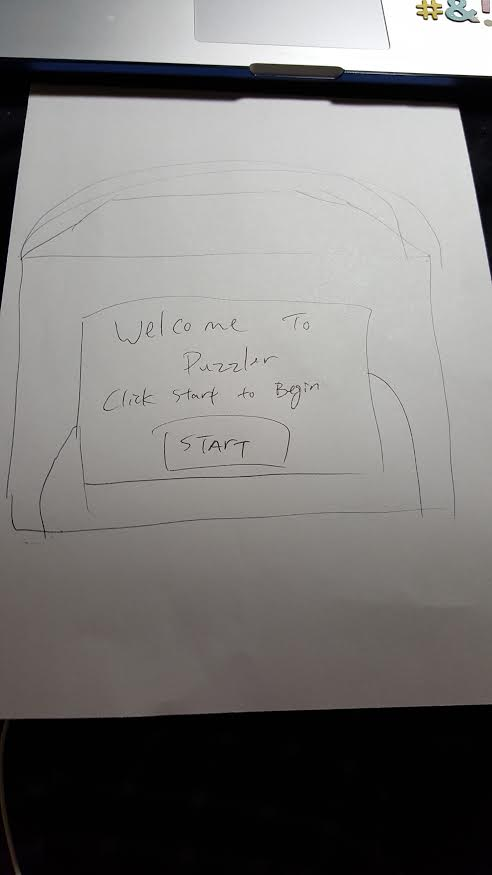 #&!
Welcome To
Puzzler
Click Start to Begin
START